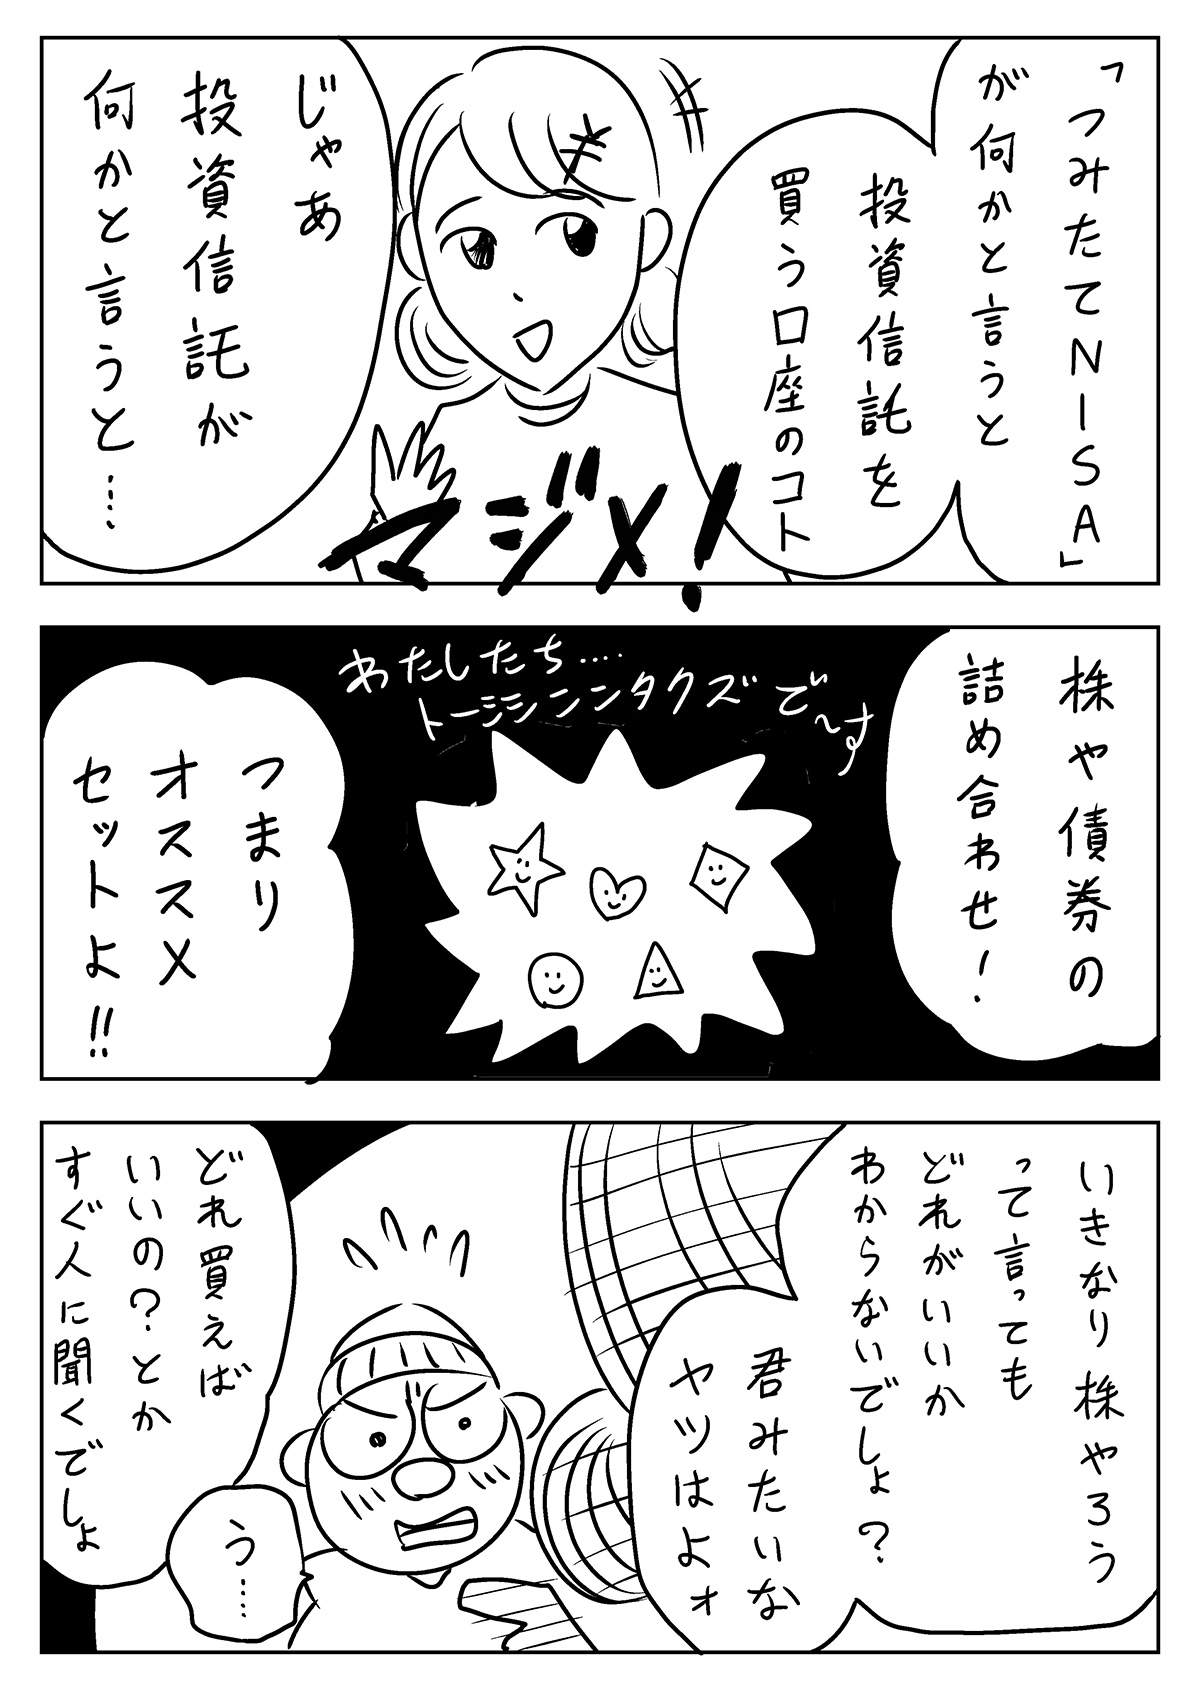 「つみたてNISA」
が何かと言うと
投資信託を
買う口座のコト
じゃあ
投資信託が
何かと言うと…
マジメ!
株や債券の
詰め合わせ!
わたしたち….
トーシシンタクズで〜す
つまり
オススメ
セットよ!!
いきなり株やろう
って言っても
どれがいいか
わからないでしょ?
君みたいな
ヤツはよォ
どれ買えば
いいの?とか
すぐ人に聞くでしょ
う…